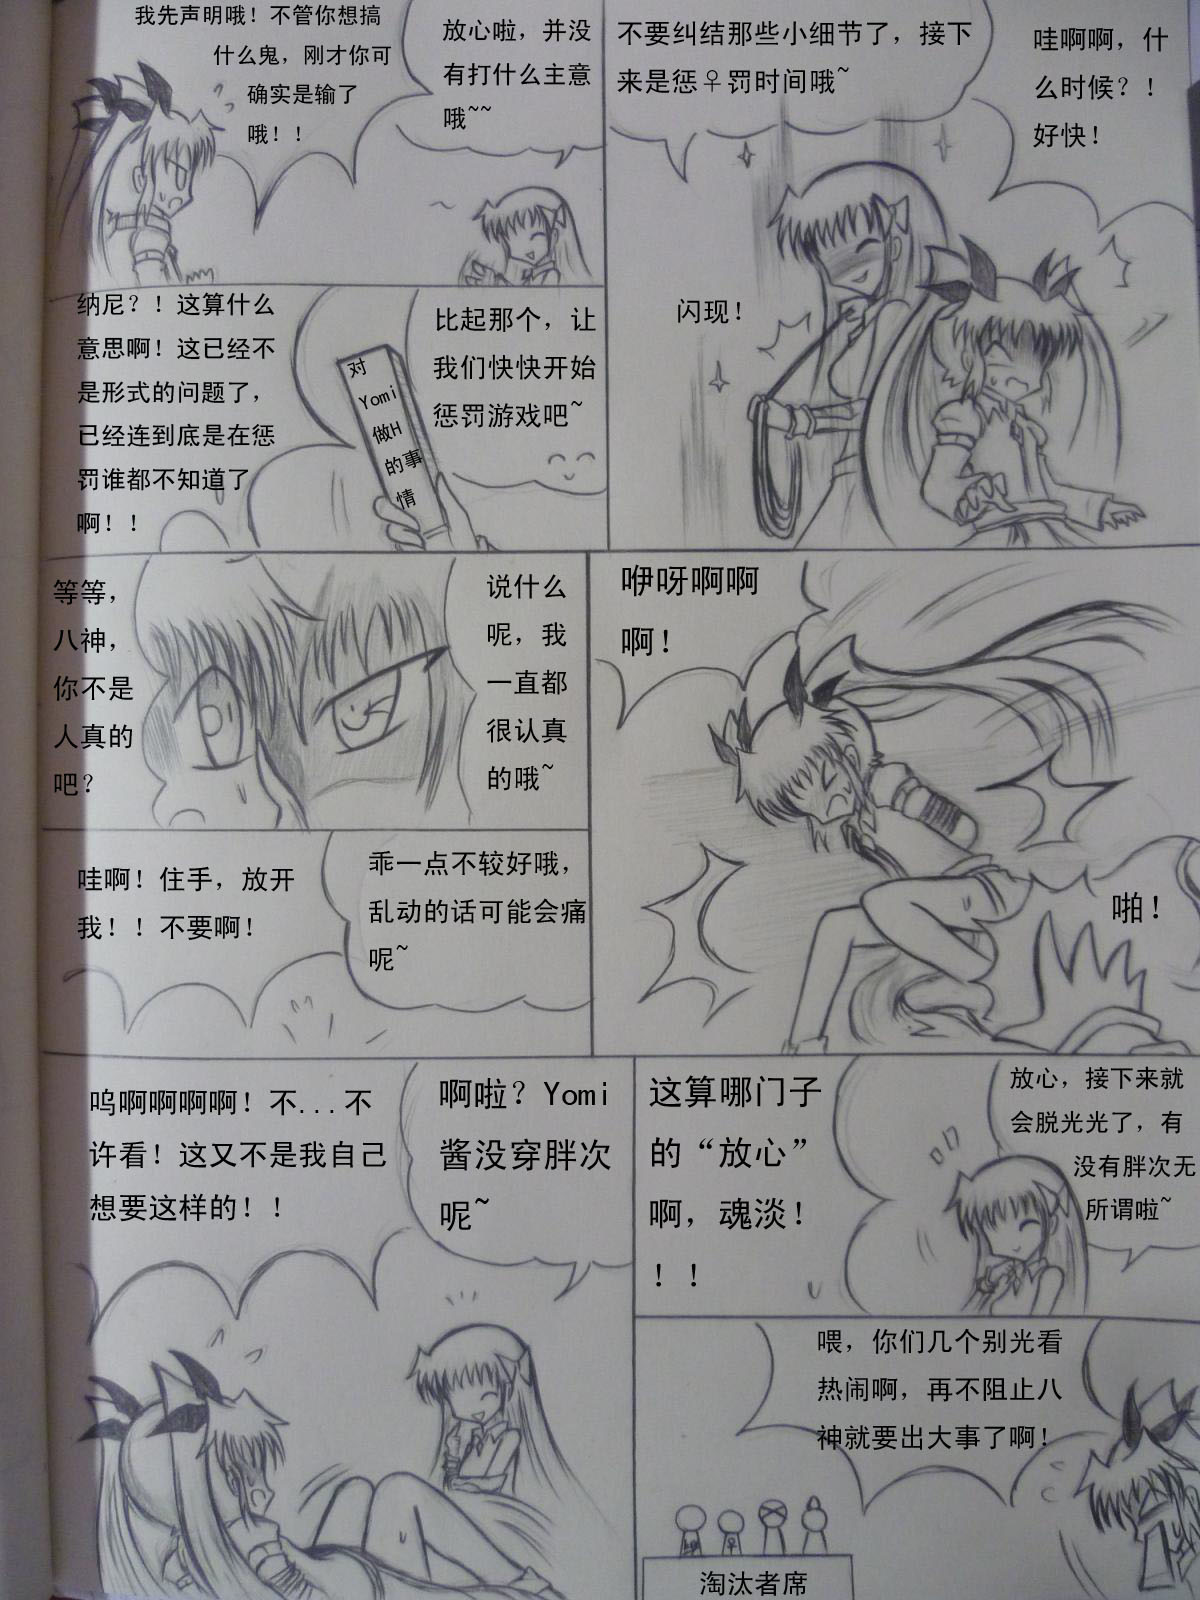 我先声明哦！不管你想搞
什么鬼，刚才你可
确实是输了
哦！！
放心啦，并没
有打什么主意
哦~~
不要纠结那些小细节了，接下
来是惩♀罚时间哦~
哇啊啊，什
么时候？！
好快！
闪现！
纳尼？！这算什么
意思啊！这已经不
是形式的问题了，
已经连到底是在惩
罚谁都不知道了
啊！！
对
Yomi
做H
的事
情
比起那个，让
我们快快开始
惩罚游戏吧~
等等，
八神，
你不是
人真的
吧？
说什么
呢，我
一直都
很认真
的哦~
咿呀啊啊
啊！
啪！
哇啊！住手，放开
我！！不要啊！
乖一点不较好哦，
乱动的话可能会痛
呢~
呜啊啊啊啊！不...不
许看！这又不是我自己
想要这样的！！
啊啦？Yomi
酱没穿胖次
呢~
这算哪门子
的“放心”
啊，魂淡！
！！
放心，接下来就
会脱光光了，有
没有胖次无
所谓啦~
喂，你们几个别光看
热闹啊，再不阻止八
神就要出大事了啊！
淘汰者席